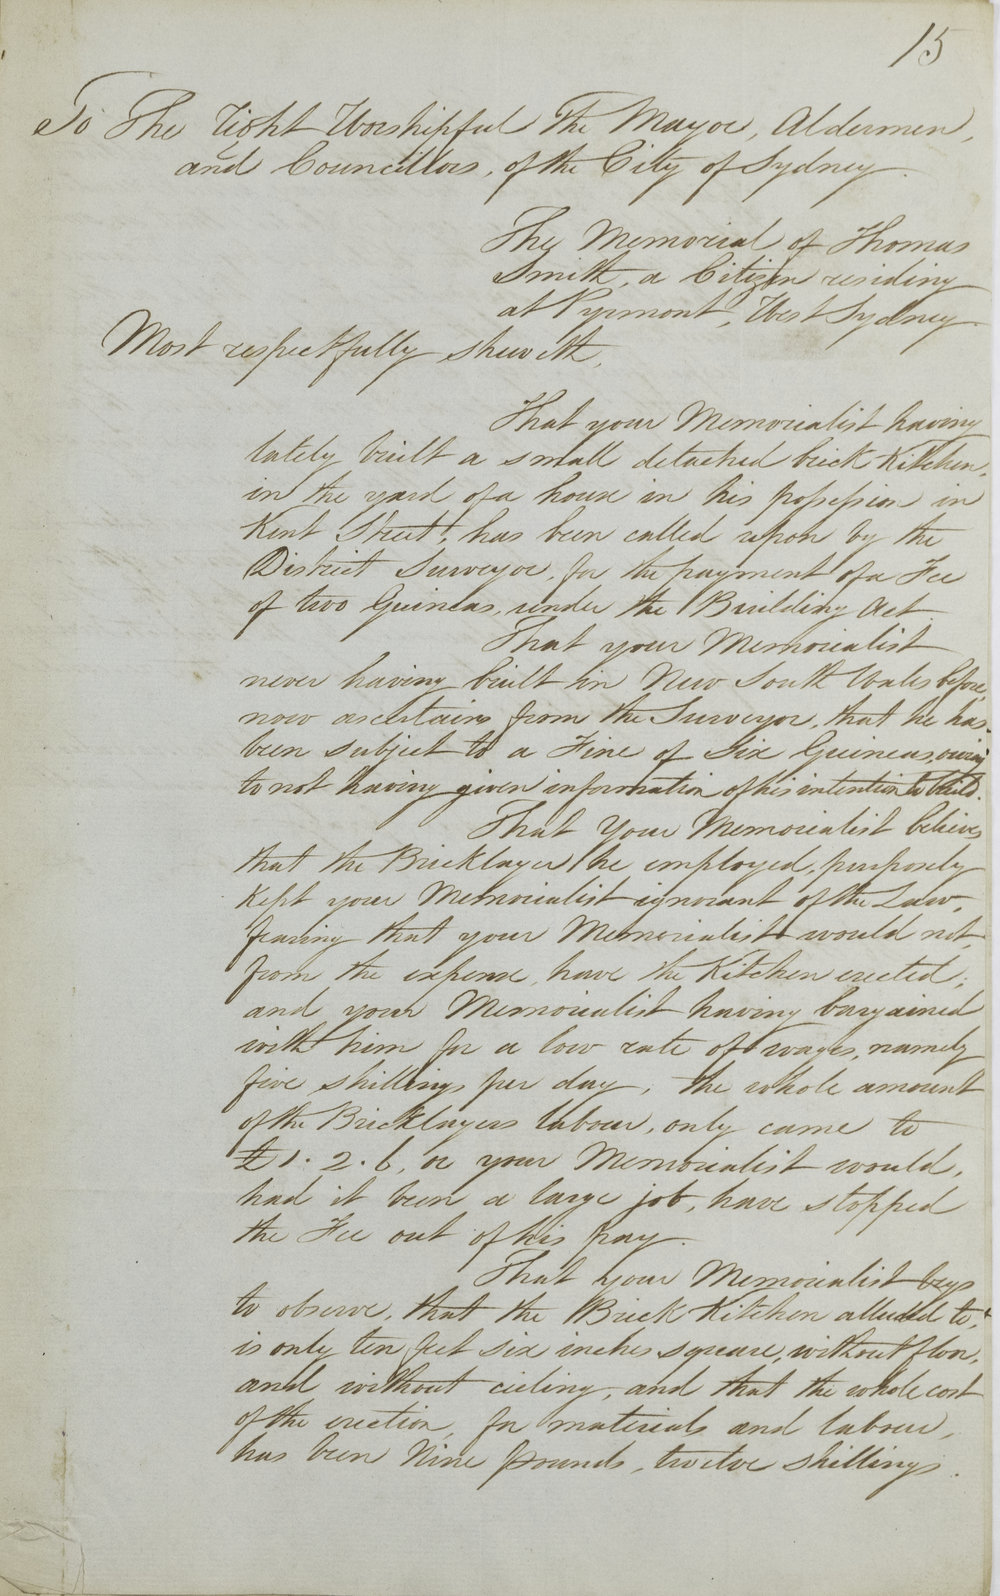 15
To The Right Worshipful The Mayor, Aldermen,
and Councillors, of the City of Sydney.
The Memorial of Thomas
Smith, a Citizen residing
at Pyrmont, West Sydney.
Most respectfully sheweth,
That your Memorialist having
lately built a small detached brick Kitchen,
in the yard of a house in his possession in
Kent Street, has been called upon by the
District Surveyor, for the payment of a Fee
of two Guineas, under the Building Act.
That your Memorialist
never having built in New South Wales before,
now ascertains from the Surveyor, that he has
been subject to a Fine of Six Guineas, owing
to not having given information of his intention to build.
That Your Memorialist believes
that the Bricklayer he employed, purposely
kept your Memorialist ignorant of the Law,
fearing that your Memorialist would not,
from the expense, have the Kitchen erected;
and your Memorialist having bargained
with him for a low rate of wages, namely
five shillings per day, the whole amount
of the Bricklayers labour, only came to
£1.2.6, or your Memorialist would,
had it been a large job, have stopped
the Fee out of his pay.
That your Memorialist begs
to observe, that the Brick Kitchen alluded to,
is only ten feet six inches square, without floor,
and without ceiling, and that the whole cost
of the erection, for materials and labour,
has been Nine pounds, twelve shillings.